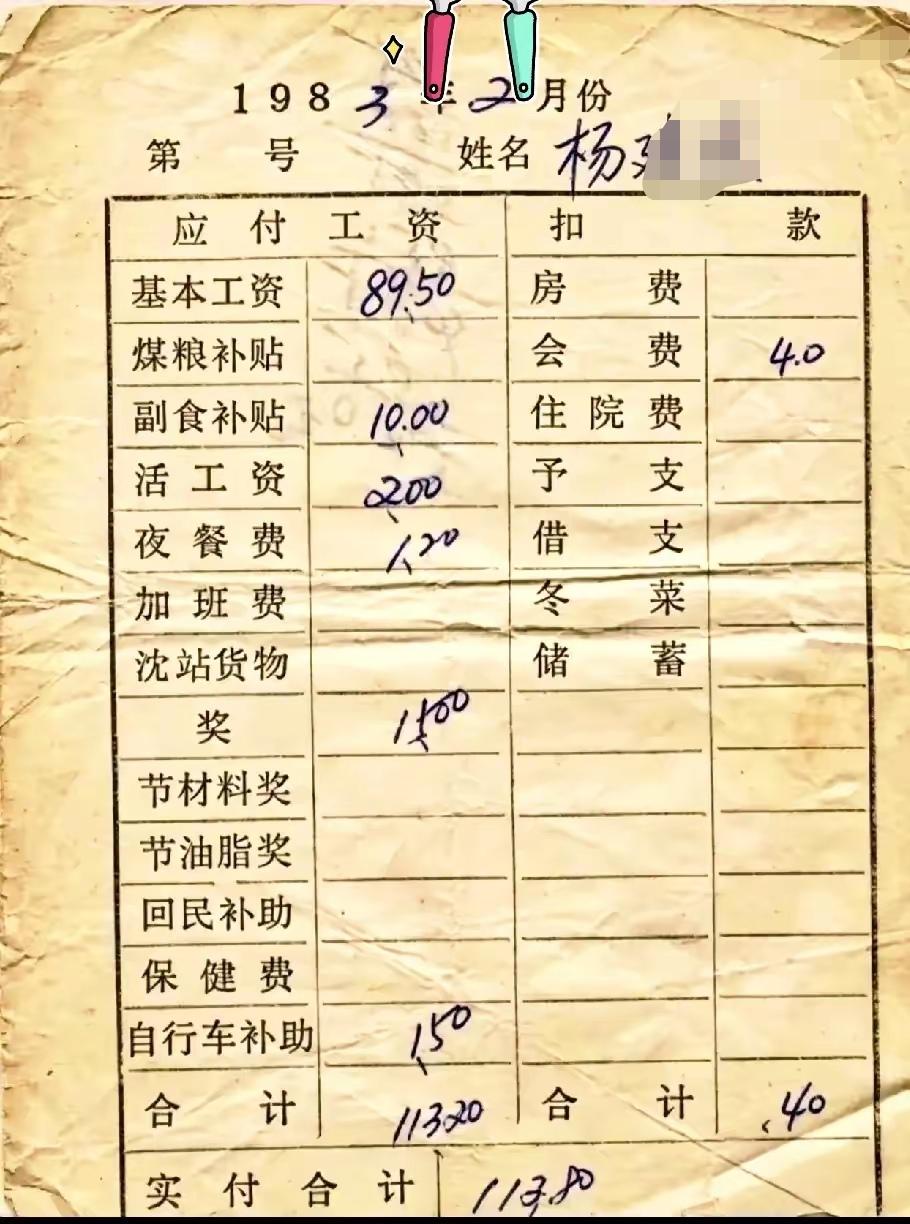 1983年2月份
第 号 姓名 杨
应付工资 扣款
基本工资 89.50 房费
煤粮补贴 会费 4.0
副食补贴 10.00 住院费
活工资 200 予支
夜餐费 1.20 借支
加班费 冬菜
沈站货物 储蓄
奖
节材料奖
节油脂奖
回民补助
保健费
自行车补助 1.50
合计 113.20 合计 .40
实付合计 113.80